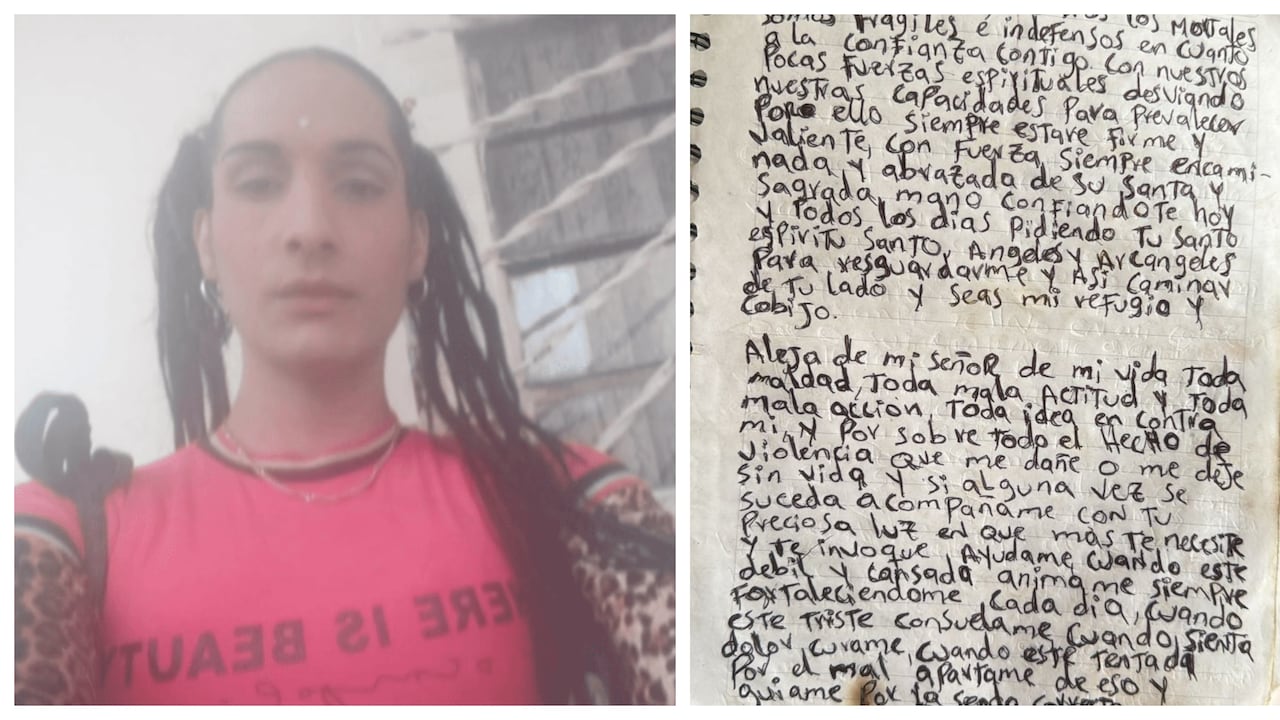 HERE IS BEAUTY
somos fragiles é indefensos los Mortales
a la confianza contigo, con nuestros
Pocas fuerzas espirituales desviando
nuestras capacidades Para Prevalecer
Por ello siempre estare firme y
valiente, con fuerza, siempre encami-
nada y abrazada de su santa y
sagrada mano confiandote hoy
y Todos los dias Pidiendo Tu santo
espiritu santo, Angeles y Arcangeles
Para resguardarme y Asi caminar
de Tu lado y seas mi refugio y
cobijo.
Aleja de mi señor de mi vida Toda
maldad, Toda mala Actitud y Toda
mala accion, Toda idea en contra
mi, y Por sobre todo el Hecho de
violencia que me dañe o me deje
sin vida y si alguna vez se
suceda acompañame con Tu
Preciosa luz en que mas Te necesite
y te invoque, Ayudame cuando este
debil y cansada animame siempre
fortaleciendome cada dia, cuando
este triste consuelame cuando sienta
dolor, curame, cuando este tentada
Por el mal apartame de eso y
guiame Por la senda correcta